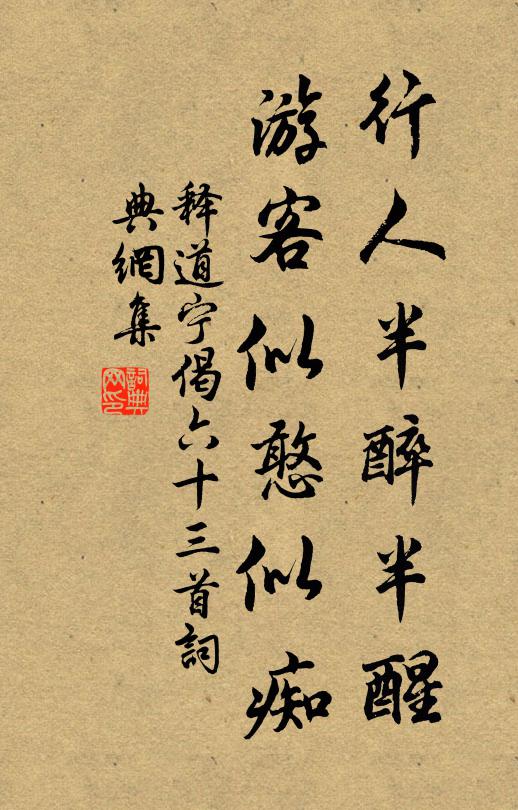 行人半醉半醒
游客似憨似痴
释道宁偈六十三首詞
典網集
詞典
网印